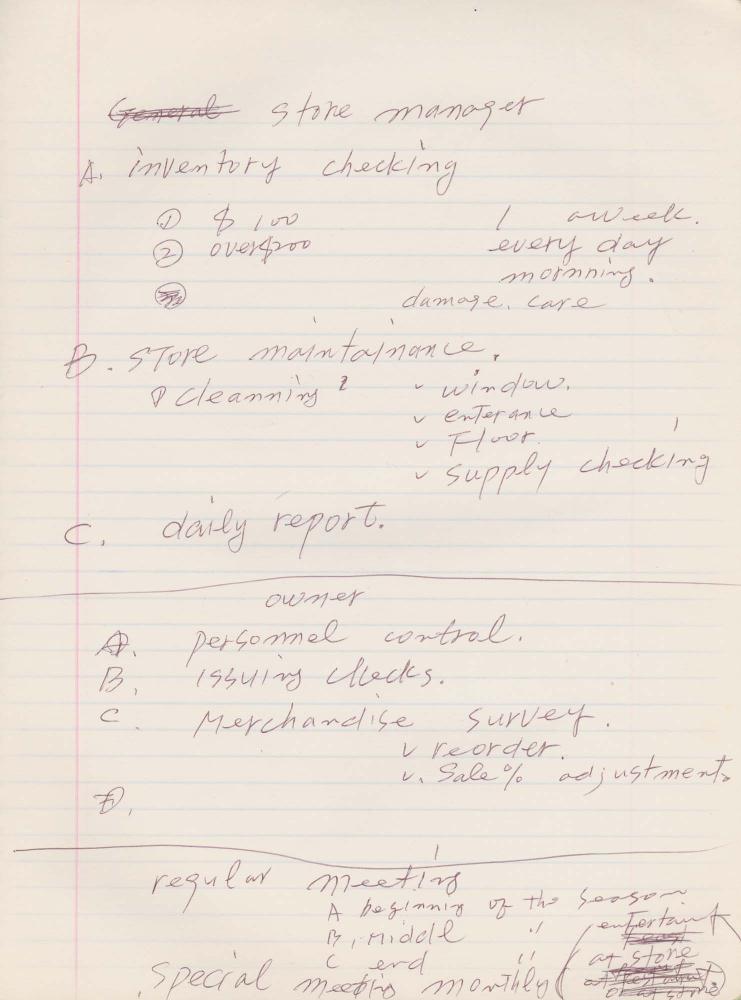 General store manager
A. inventory checking
① $100 1 aweek.
② over$200 every day
mornning.
damage. care
B. store maintainance.
① cleanning
✓ window.
✓ enterance
✓ Floor.
✓ supply checking
C. daily report.
owner
A. personnel control.
B. issuing checks.
C. Merchandise survey.
✓ reorder.
✓. Sale% adjustment
D.
regular meeting
A beginning of the season
B. Middl "
C end "
special meeting monthly
(entertain
at store